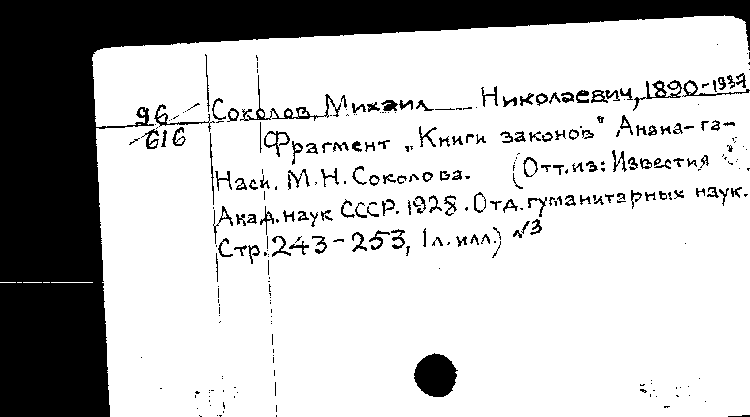 96
616
Соколов, Михаил Николаевич, 1890-1937
Фрагмент „Книги законов" Анана-га-
Наси. М.Н. Соколова. (Отт.из: Известия
Акад. наук СССР. 1928. Отд. гуманитарных наук.
Стр. 243-253, 1 л. илл.) №3